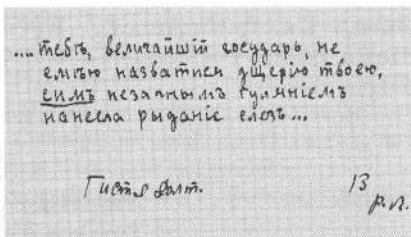 .... тебѣ, величайшій государь, не
смѣю назватися дщерію твоею,
симъ незачнымъ гулмніемъ
нанесла рыданіе слезъ ...
13
р. л.